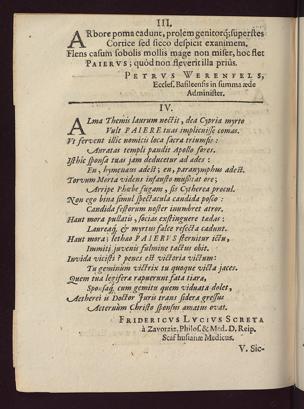 III.
ARbore poma cadunt, prolem genitorq; superstes
Cortice sed sicco despicit exanimem.
Flens casum sobolis mollis mage non miser, hoc flet
PAIERVS; quòd non fleverit illa priùs.
PETRVS WERENFELS,
Eccles. Basileensis in summa æde
Administer.
IV.
ALma Themis laurum nectit, dea Cypria myrto
Vult PAIERE tuas implicuisse comas.
Vt fervent illic nomicis loca sacra triumfis:
Auratas templi pandit Apollo fores.
Isthic sponsa tuas jam deducetur ad ædes:
En, hymenæus adest; en, paranymphus adest.
Torvum Mors videns infausto mussitat ore;
Arripe Phœbe fugam, sis Cytherea procul.
Non ego bina simul spectacula candida posco:
Candida festorum noster inumbret atror.
Haut mora pullatis, socias exstinguere tædas:
Laureaq; & myrtus falce resecta cadunt.
Haut mora; letho PAIERVS sternitur ictu,
Immiti juvenis fulmine tactus obit.
Invida vicisti? penes est victoria victum:
Tu geminùm victrix tu quoque victa jaces.
Quem tua legifera rapuerunt fata tiara,
Sponsaq; cum gemitu quem viduata dolet,
Aethereis Doctor Juris trans sidera gressus
Acternùm Christo sponsus amatus ovat.
FRIDERICVS LVCIVS SCRETA
à Zavorziz. Philos. & Med. D. Reip.
Scafhusianæ Medicus.
V. Sic-